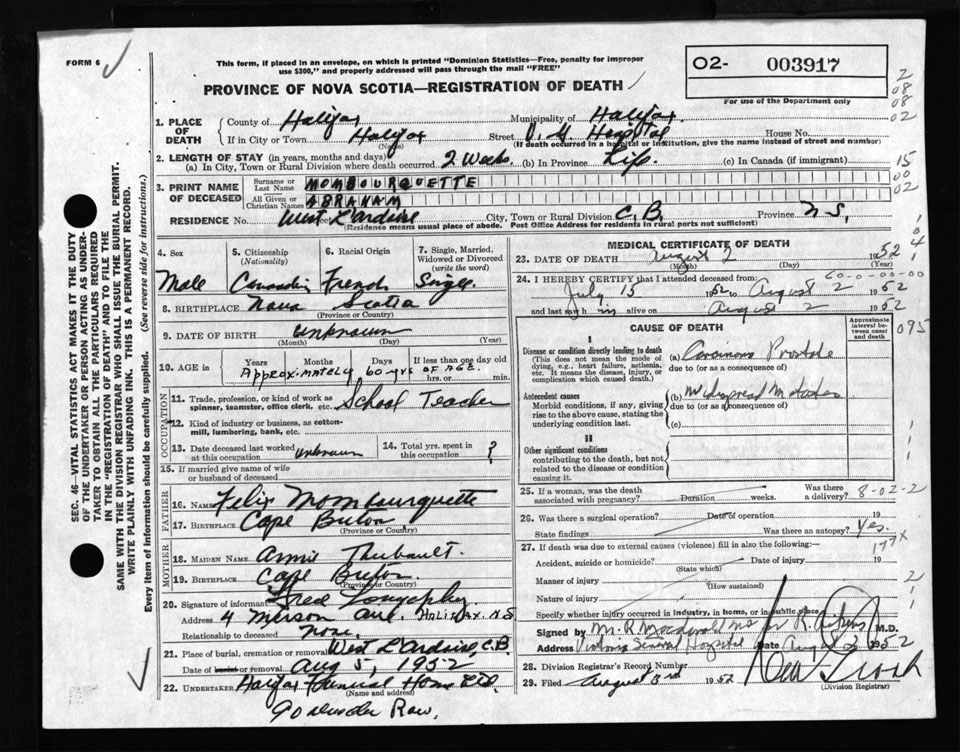 FORM 6
This form, if placed in an envelope, on which is printed "Dominion Statistics—Free, penalty for improper
use $300," and properly addressed will pass through the mail "FREE"
O2- 003917
For use of the Department only
PROVINCE OF NOVA SCOTIA—REGISTRATION OF DEATH
2
08
08
02
1. PLACE OF DEATH
County of Halifax Municipality of Halifax.
If in City or Town Halifax Street V. G. Hospital House No.
(Name) (If death occurred in a hospital or institution, give the name instead of street and number)
2. LENGTH OF STAY (in years, months and days)
(a) In City, Town or Rural Division where death occurred 2 weeks. (b) In Province Life. (c) In Canada (if immigrant)
15
00
02
3. PRINT NAME OF DECEASED
Surname or Last Name MOMBOURQUETTE
All Given or Christian Names ABRAHAM
RESIDENCE No. West L'Ardoise City, Town or Rural Division C. B. Province N S.
(Residence means usual place of abode. Post Office Address for residents in rural parts not sufficient)
4. Sex
Male
5. Citizenship (Nationality)
Canadian
6. Racial Origin
French
7. Single, Married, Widowed or Divorced (write the word)
Single
8. BIRTHPLACE Nova Scotia
(Province or Country)
9. DATE OF BIRTH unknown
(Month) (Day) (Year)
10. AGE in Years Months Days If less than one day old
hrs. or min.
Approximately 60 yrs OF AGE.
OCCUPATION
11. Trade, profession, or kind of work as spinner, teamster, office clerk, etc. School Teacher
12. Kind of industry or business, as cotton-mill, lumbering, bank, etc.
13. Date deceased last worked at this occupation unknown
14. Total yrs. spent in this occupation ?
15. If married give name of wife or husband of deceased
FATHER
16. NAME Felix Mombourquette
17. BIRTHPLACE Cape Breton.
(Province or Country)
MOTHER
18. MAIDEN NAME Annie Thibault.
19. BIRTHPLACE Cape Breton
(Province or Country)
20. Signature of informant Fred
Address 4 Merson Ave. HALIFAX. N S
Relationship to deceased None.
21. Place of burial, cremation or removal West L'Ardoise, C.B.
Date of burial or removal Aug 5, 1952
22. UNDERTAKER Halifax Funeral Home Ltd.
(Name and address)
Row.
MEDICAL CERTIFICATE OF DEATH
23. DATE OF DEATH August 2 1952
(Month) (Day) (Year)
24. I HEREBY CERTIFY that I attended deceased from:
60-0-00-00
July 15 1952 to August 2 1952
and last saw h im alive on August 2 1952
CAUSE OF DEATH
Approximate interval between onset and death
095
I
Disease or condition directly leading to death
(This does not mean the mode of dying, e.g., heart failure, asthenia, etc. It means the disease, injury, or complication which caused death.)
(a) Carcinoma Prostate
due to (or as a consequence of)
Antecedent causes
Morbid conditions, if any, giving rise to the above cause, stating the underlying condition last.
(b) Widespread
due to (or as a consequence of)
(c)
II
Other significant conditions
contributing to the death, but not related to the disease or condition causing it.
25. If a woman, was the death associated with pregnancy? Duration weeks. Was there a delivery?
8-02-2
26. Was there a surgical operation? Date of operation 19
State findings Was there an autopsy? Yes.
177X
27. If death was due to external causes (violence) fill in also the following:—
Accident, suicide or homicide? Date of injury 19
(State which)
Manner of injury
(How sustained)
Nature of injury
Specify whether injury occurred in industry, in home, or in public place
Signed by M. R Macdonald for R. M.D.
Address Victoria General Hospital Date Aug 1952
28. Division Registrar's Record Number
29. Filed August 3rd 1952
(Division Registrar)
SEC. 46 VITAL STATISTICS ACT MAKES IT THE DUTY
OF THE UNDERTAKER OR PERSON ACTING AS UNDER-
TAKER TO OBTAIN ALL THE PARTICULARS REQUIRED
IN THE "REGISTRATION OF DEATH" AND TO FILE THE
SAME WITH THE DIVISION REGISTRAR WHO SHALL ISSUE THE BURIAL PERMIT.
WRITE PLAINLY WITH UNFADING INK. THIS IS A PERMANENT RECORD.
Every item of information should be carefully supplied. (See reverse side for instructions.)